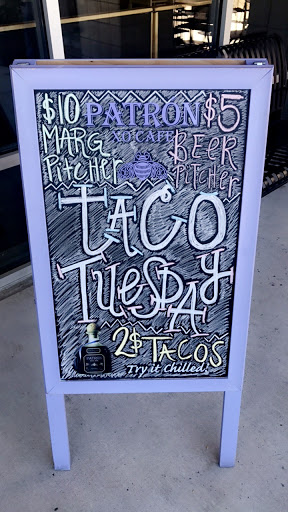 $10 PATRÓN $5
MARG XO CAFE BEER
PitcHer PitcHer
TACO
TUESDAY
2$ TACO'S
Try it Chilled.